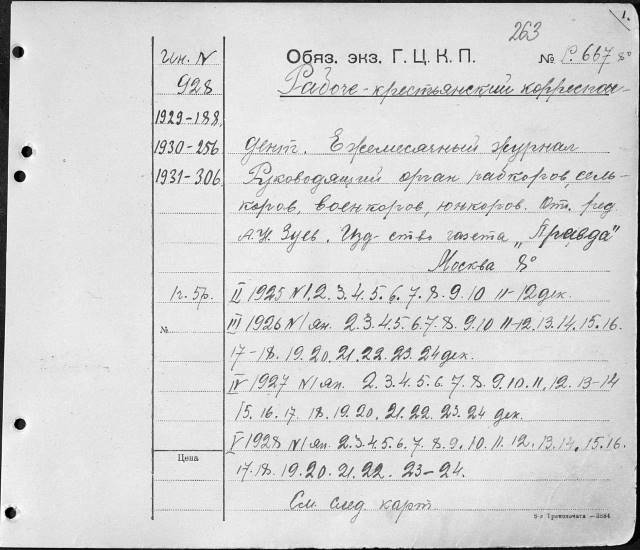 1.
263
Ин. N Обяз. экз. Г. Ц. К. П. № P. 667 8°
928 Рабоче-крестьянский корреспон-
1929-188,
1930-256 дент. Ежемесячный журнал
1931-306, Руководящий орган рабкоров, сель-
коров, военкоров, юнкоров. Отв. ред.
А.И. Зуев. Изд-ство газета „Правда"
Москва 8°
1г. 5р. II 1925 N 1, 2. 3. 4. 5. 6. 7. 8. 9. 10 11-12 дек.
№ III 1926 N 1 ян. 2. 3. 4. 5. 6. 7. 8. 9. 10 11-12, 13. 14. 15. 16.
17-18. 19. 20. 21. 22. 23. 24 дек.
IV 1927 N 1 ян. 2. 3. 4. 5. 6. 7. 8. 9. 10. 11. 12. 13-14
15. 16. 17. 18. 19. 20. 21. 22. 23. 24 дек.
V 1928 N 1 ян. 2. 3. 4. 5. 6. 7. 8. 9. 10. 11. 12. 13. 14. 15. 16.
Цена 17. 18. 19. 20. 21. 22. 23-24.
См. след. карт.